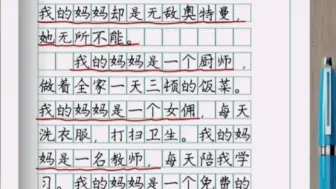 我的妈妈却是无敌奥特曼，
她无所不能。
我的妈妈是一个厨师，
做着全家一天三顿的饭菜。
我的妈妈是一个女佣，每天
洗衣服，打扫卫生。我的妈
妈是一名教师，每天陪我学
习。我的妈妈是一个免费的